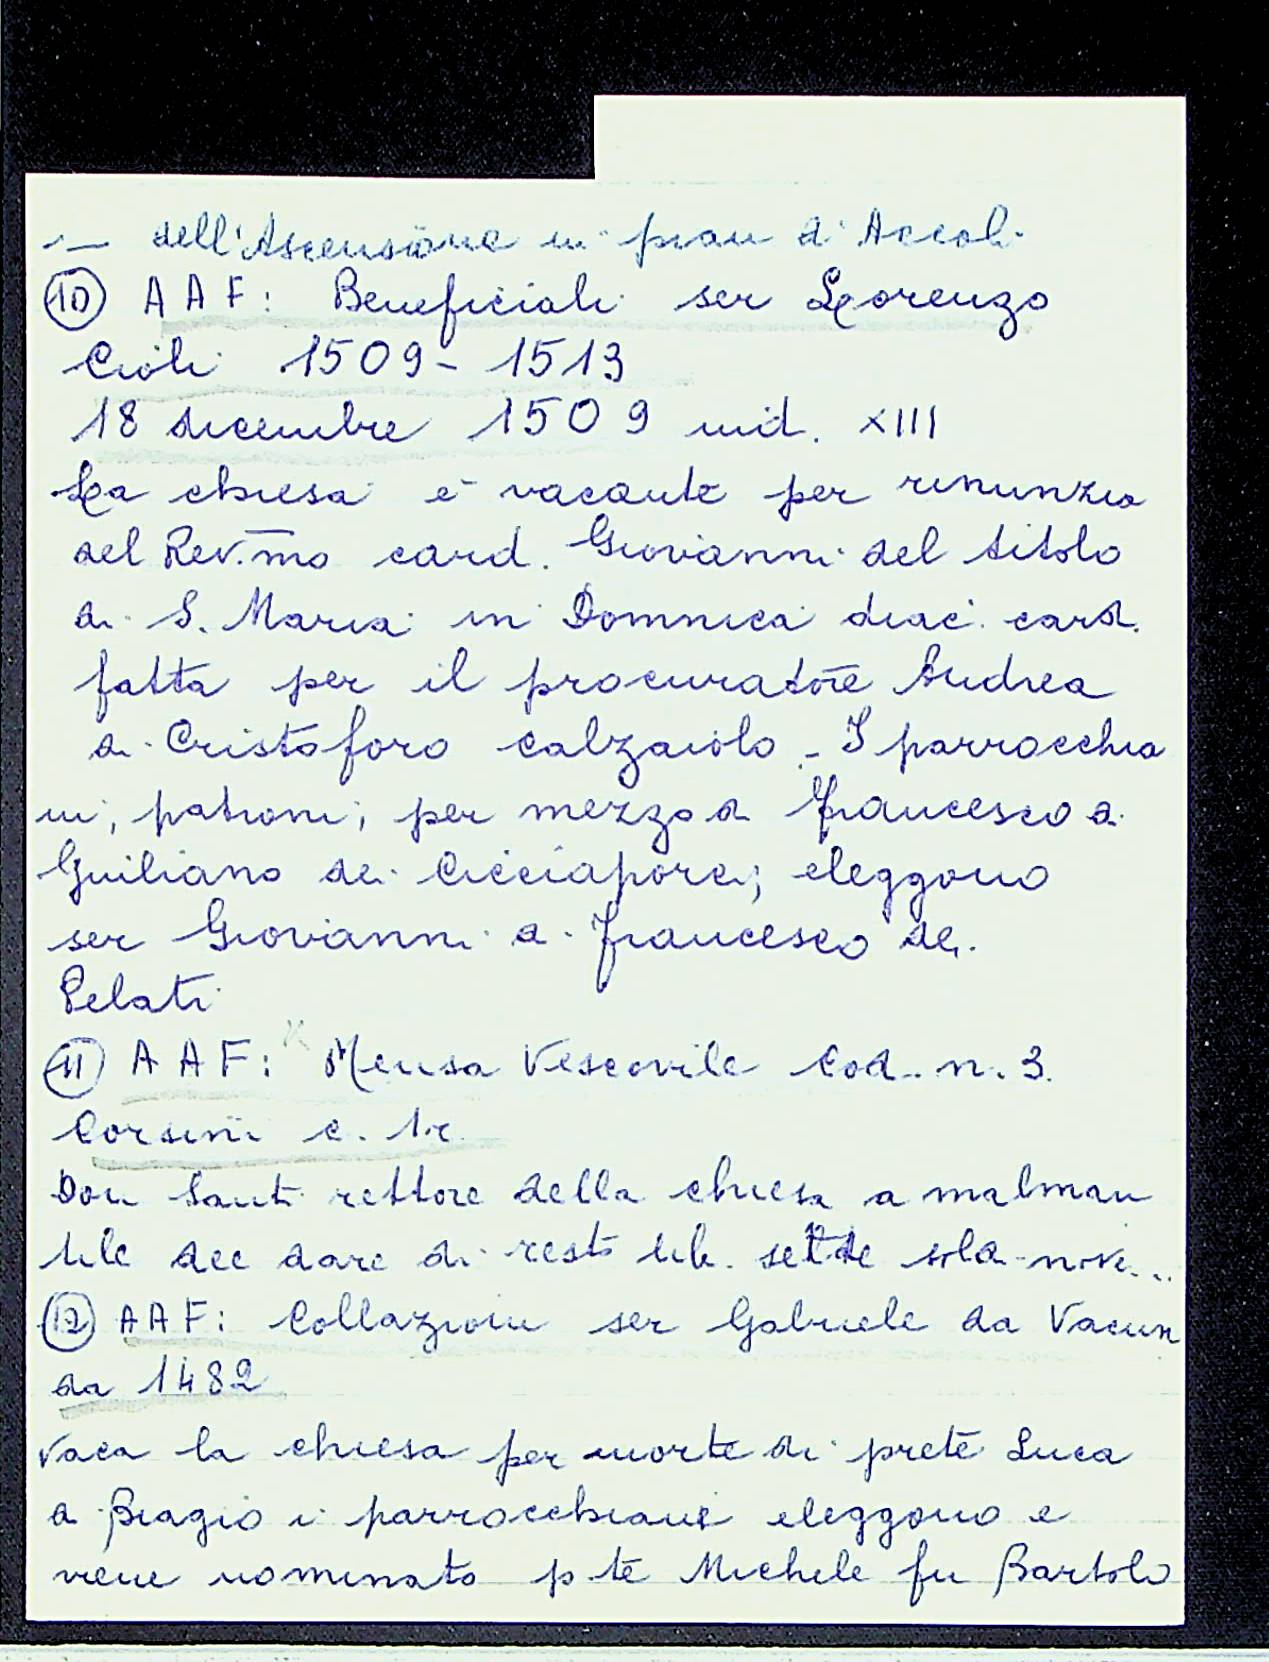 dell'Ascensione in pian d'Ascoli
(10) AAF: Beneficiali ser Lorenzo
Cioli 1509-1513
18 dicembre 1509 ind. XIII
La chiesa è vacante per rinunzia
del Rev.mo card. Giovanni del titolo
di S. Maria in Domnica diac. card.
fatta per il procuratore Andrea
di Cristoforo calzaiolo - I parrocchia
ni, patroni, per mezzo di Francesco di
Guiliano dei Cicciaporci, eleggono
ser Giovanni di Francesco dei
Pelati
(11) AAF: Mensa Vescovile Cod. n. 3.
Corsini c. 1r
Don Santi rettore della chiesa a malman
tile dee dare di resto lib. sette sold. nove...
(12) AAF: Collazioni ser Gabriele da Vacun
da 1482
Vaca la chiesa per morte di prete Luca
di Biagio i parrocchiani eleggono e
viene nominato p.te Michele fu Bartolo